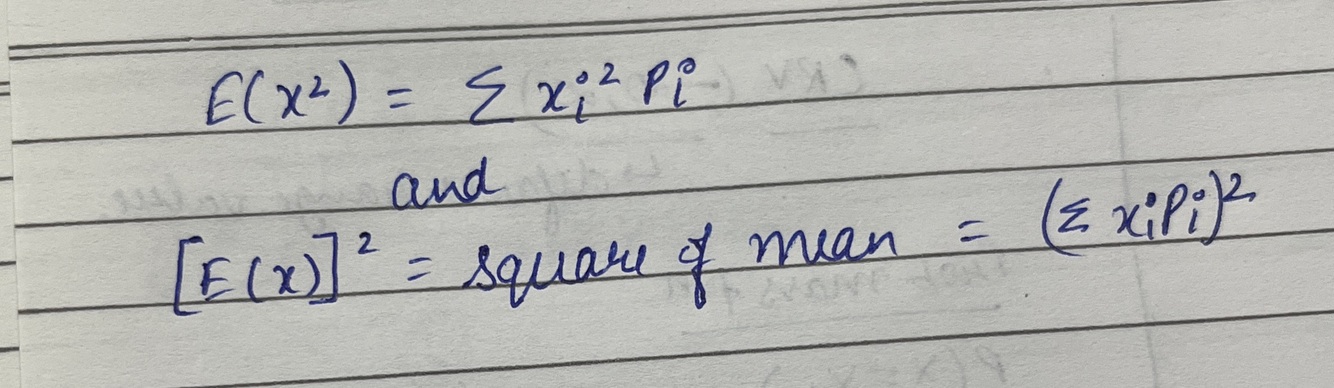 E(x²) = Σ xᵢ² Pᵢ
and
[E(x)]² = square of mean = (Σ xᵢPᵢ)²